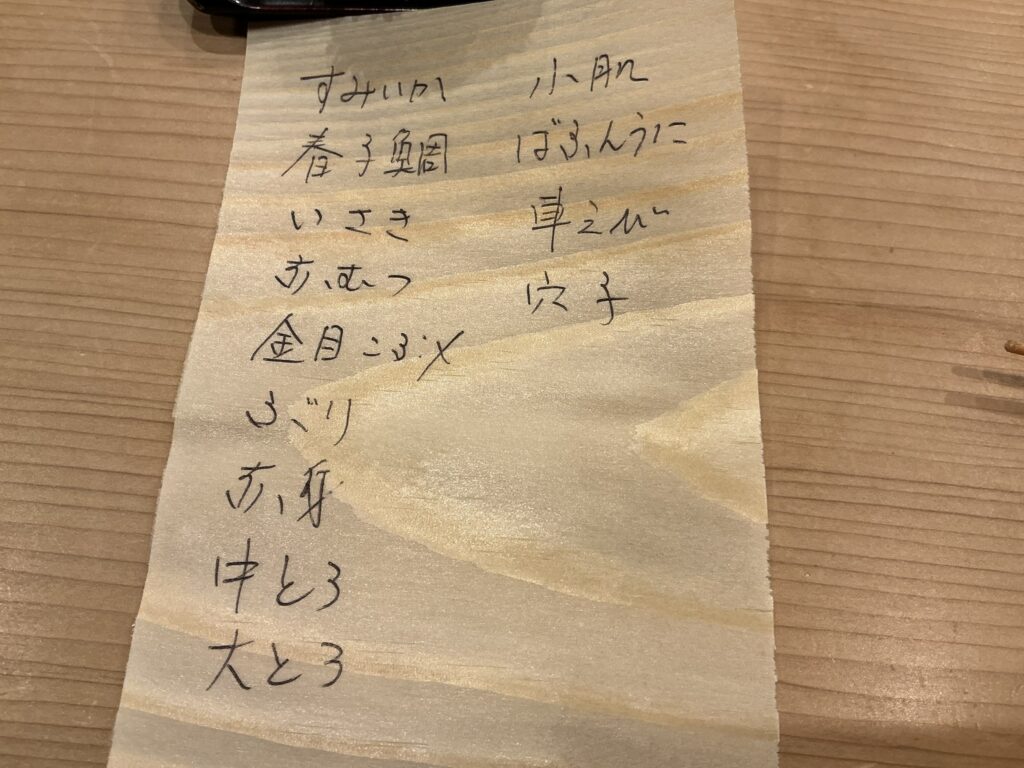 すみいか
春子鯛
いさき
赤むつ
金目こぶ〆
ぶり
赤身
中とろ
大とろ
小肌
ばふんうに
車えび
穴子